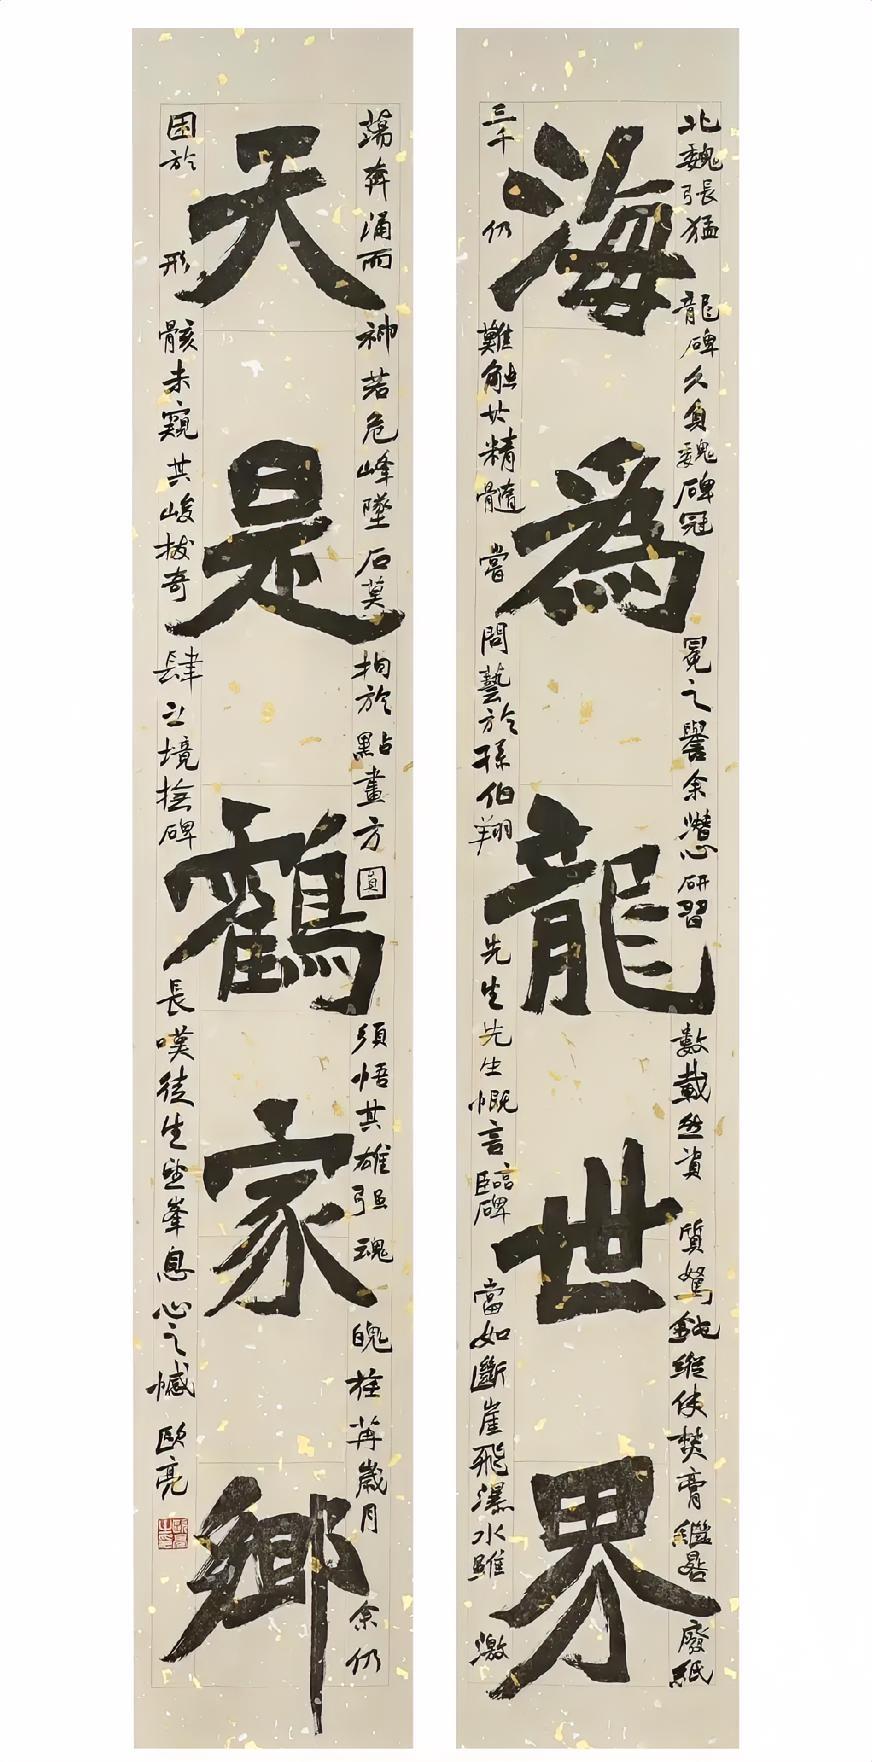 海為龍世界
天是鶴家鄉
北魏張猛龍碑久負魏碑冠冕之譽余潛心研習數載然資質駑鈍縱使焚膏繼晷廢紙
三千仍難觸其精髓嘗問藝於孫伯翔先生先生慨言臨碑當如斷崖飛瀑水雖激
蕩奔涌而神若危峰墜石莫拘於點畫方圓須悟其雄強魂魄往苒歲月余仍
困於形骸未窺其峻拔奇肆之境撫碑長嘆徒生望峯息心之憾歐亮